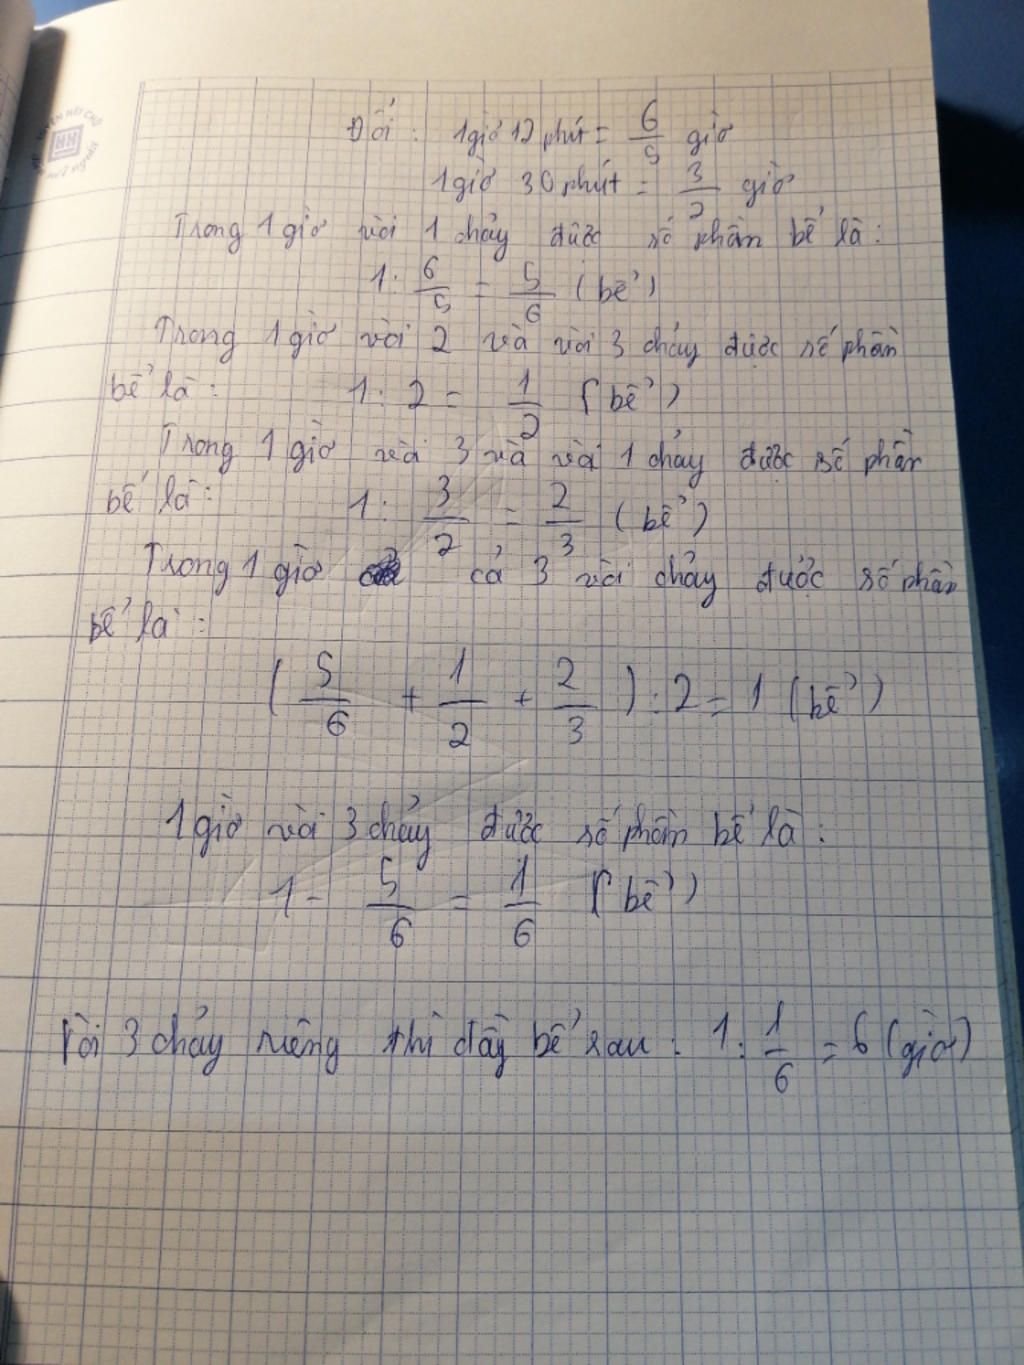 Đổi: 1giờ 12 phút = 6/5 giờ
1giờ 30 phút = 3/2 giờ
Trong 1 giờ vòi 1 chảy được số phần bể là:
1: 6/5 = 5/6 (bể)
Trong 1 giờ vòi 2 và vòi 3 chảy được số phần
bể là: 1: 2 = 1/2 (bể)
Trong 1 giờ vòi 3 và vòi 1 chảy được số phần
bể là: 1: 3/2 = 2/3 (bể)
Trong 1 giờ cả 3 vòi chảy được số phần
bể là:
( 5/6 + 1/2 + 2/3 ) : 2 = 1 (bể)
1 giờ vòi 3 chảy được số phần bể là:
1 - 5/6 = 1/6 (bể)
Vòi 3 chảy riêng thì đầy bể sau: 1: 1/6 = 6 (giờ)